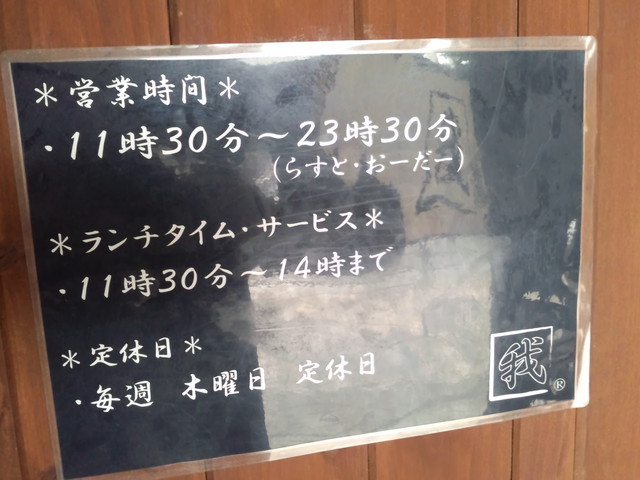 ＊営業時間＊
・11時30分～23時30分
(らすと・おーだー)
＊ランチタイム・サービス＊
・11時30分～14時まで
＊定休日＊
・毎週 木曜日 定休日
我
®